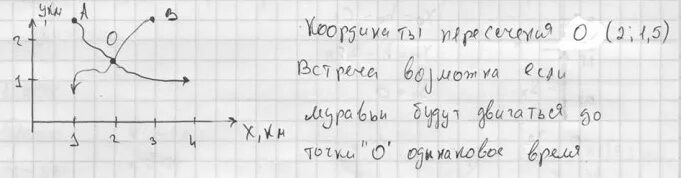 y, км
A
B
O
2
1
1
2
3
4
x, км
Координаты пересечения O (2; 1,5)
Встреча возможна если
муравьи будут двигаться до
точки "O" одинаковое время